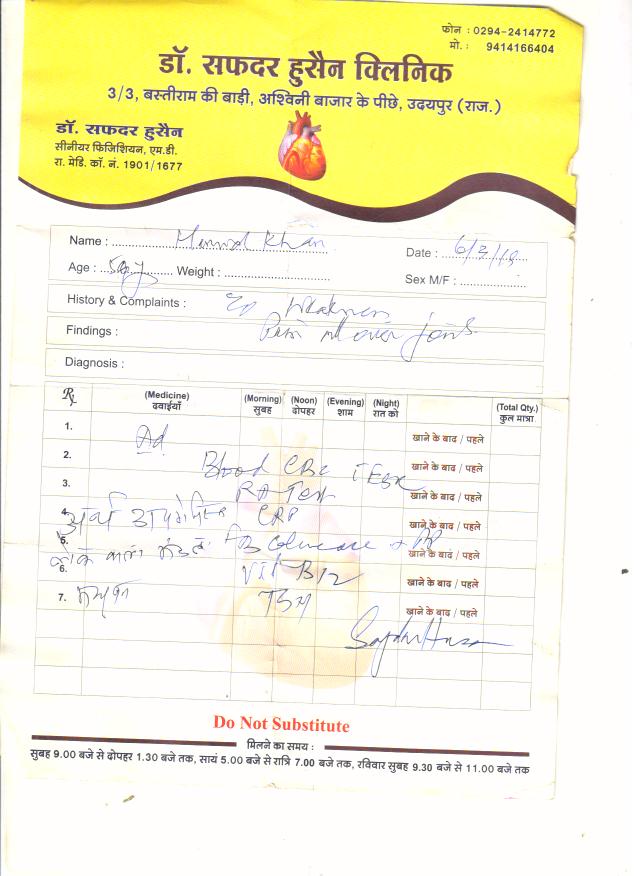 फोन : 0294-2414772
मो. : 9414166404
डॉ. सफदर हुसैन क्लिनिक
3/3, बस्तीराम की बाड़ी, अश्विनी बाजार के पीछे, उदयपुर (राज.)
डॉ. सफदर हुसैन
सीनीयर फिजिशियन, एम.डी.
रा. मेडि. कॉ. नं. 1901/1677
Name : Khan Date :
Age : Weight : Sex M/F :
History & Complaints : Weakness
Findings : Pain all over joints
Diagnosis :
Rx (Medicine) (Morning) (Noon) (Evening) (Night) (Total Qty.)
दवाईयाँ सुबह दोपहर शाम रात को कुल मात्रा
1. Ad खाने के बाद / पहले
2. Blood CBC ESR खाने के बाद / पहले
3. RA Test खाने के बाद / पहले
4. CRP खाने के बाद / पहले
5. Glucose + PP खाने के बाद / पहले
6. Vit B12 खाने के बाद / पहले
7. खाने के बाद / पहले
Do Not Substitute
मिलने का समय :
सुबह 9.00 बजे से दोपहर 1.30 बजे तक, सायं 5.00 बजे से रात्रि 7.00 बजे तक, रविवार सुबह 9.30 बजे से 11.00 बजे तक